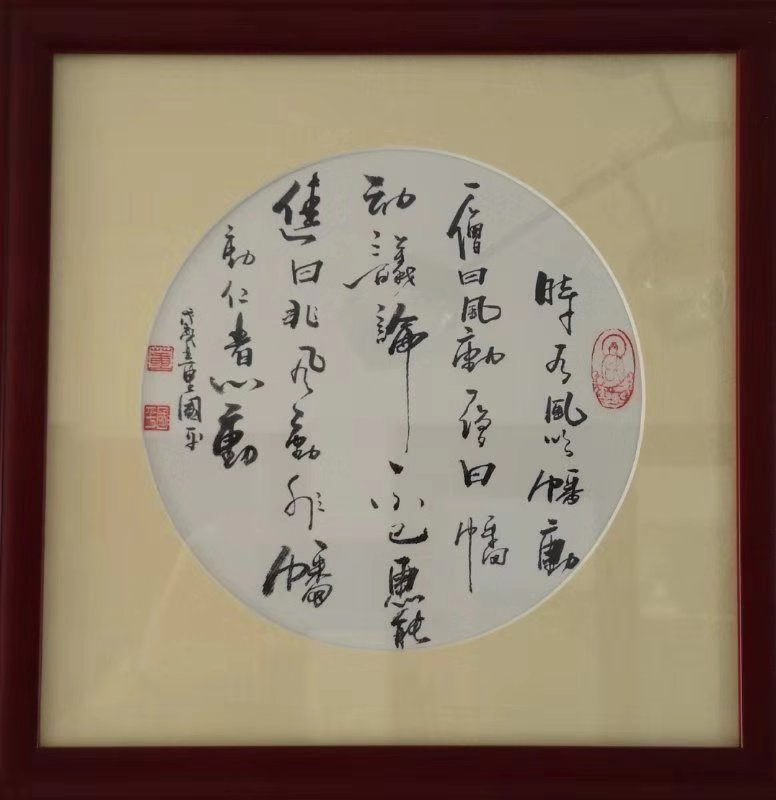 時有風吹幡動
一僧曰風動一僧曰幡
动議論不已惠能
進曰非风動非幡
動仁者心動
戊戌董國平